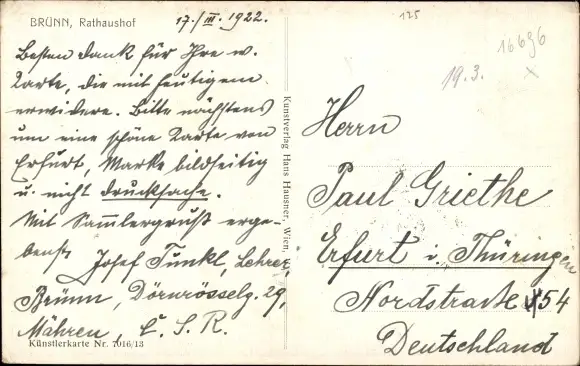 BRÜNN, Rathaushof
17./III. 1922.
Besten Dank für Ihre w.
Karte, die mit heutigem
erwidere. Bitte nächstens
um eine schöne Karte von
Erfurt, Marke bildseitig
u. nicht Drucksache.
Mit Sammlergruß erge-
benst Josef Tunkl, Lehrer,
Brünn, Dörnrösselg. 29,
Mähren, Č. S. R.
Künstlerkarte Nr. 7016/13
Kunstverlag Hans Hausner, Wien,
125
16696
19.3.
Herrn
Paul Griethe
Erfurt i. Thüringen
Nordstraße 54
Deutschland